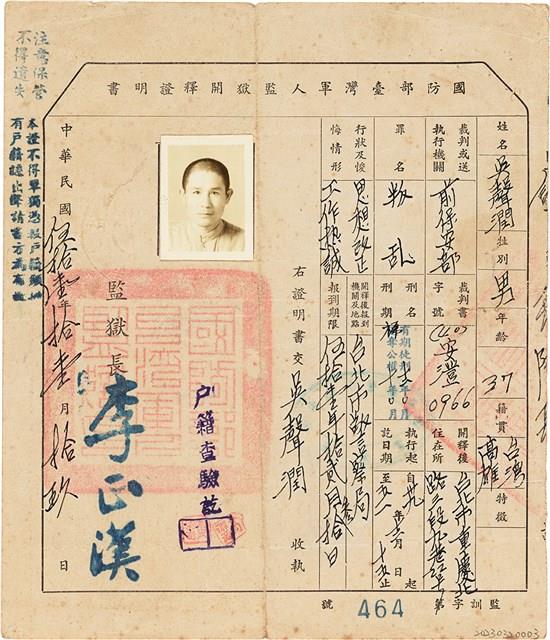 國防部臺灣軍人監獄開釋證明書
姓名
吳聲潤
性別
男
年齡
37
籍貫
台灣高雄
特徵
裁判或送執行機關
前保安部
裁判書字號
安澄
0966
開釋後住在所
台北市重慶北路
罪名
叛亂
刑名
刑期
執行起訖日期
自
年
月
日
起
至
止
行狀及悛悔情形
思想改正
工作熱誠
開釋後報到機關及地點
台北市警察局
報到期限
伍拾壹年拾貳月
日
右證明書交
吳聲潤
收執
戶籍查驗訖
監獄長
李正漢
中華民國
伍拾壹年拾壹月拾玖日
注意保管
不得遺失
本證不得單獨憑報戶籍
監訓字第
464
號
20230320003